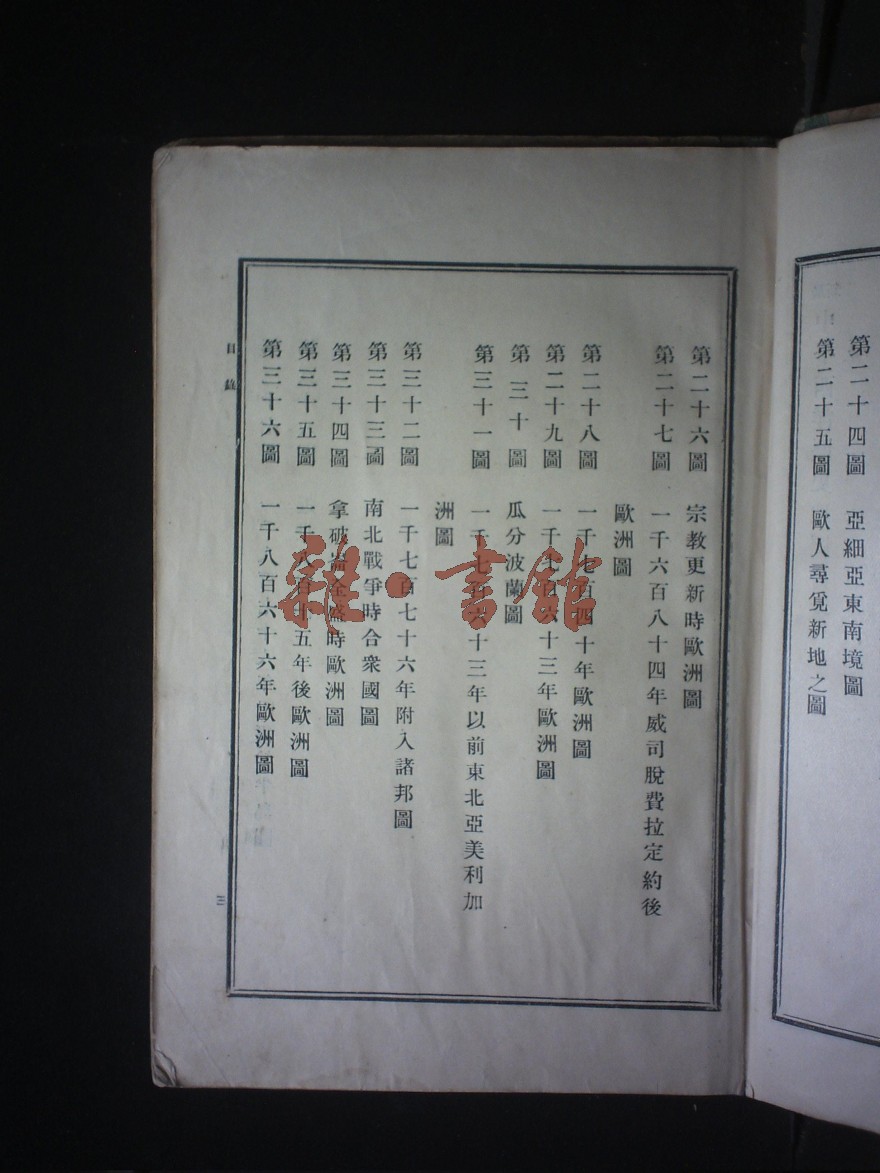 第二十四圖 亞細亞東南境圖
第二十五圖 歐人尋覓新地之圖
第二十六圖 宗教更新時歐洲圖
第二十七圖 一千六百八十四年威司脫費拉定約後
歐洲圖
第二十八圖 一千七百四十年歐洲圖
第二十九圖 一千七百六十三年歐洲圖
第三十圖 瓜分波蘭圖
第三十一圖 一千七百六十三年以前東北亞美利加
洲圖
第三十二圖 一千七百七十六年附入諸邦圖
第三十三圖 南北戰爭時合衆國圖
第三十四圖 拿破崙全盛時歐洲圖
第三十五圖 一千八百十五年後歐洲圖
第三十六圖 一千八百六十六年歐洲圖
目錄
三
雜·書館